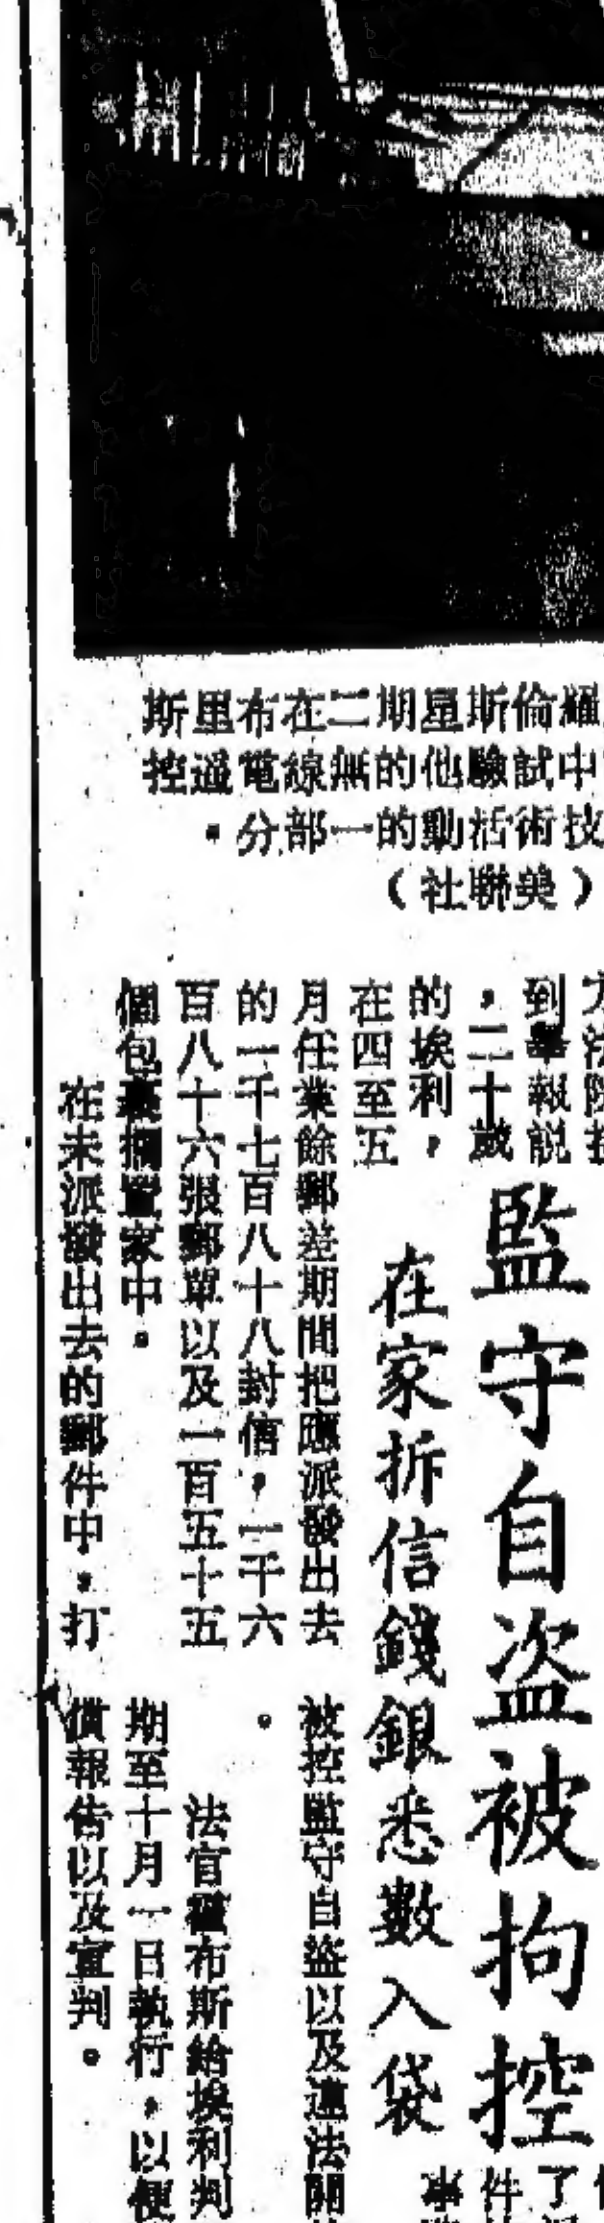 斯里布在二期星斯倫
控遥電線無的他驗試中
。分部一的動活術技
（社聯美）
監守自盗被拘控
在家拆信錢銀悉數入袋
到舉報説
，二十歲
的埃利，
在四至五
月任業餘郵差期間把應派發出去
的一千七百八十八封信，一千六
百八十六張郵單以及一百五十五
個包裹擱置家中。
在未派發出去的郵件中，打
被控監守自盗以及違法開
。
法官霍布斯給埃利判
期至十月一日執行，以便
償報告以及宣判。